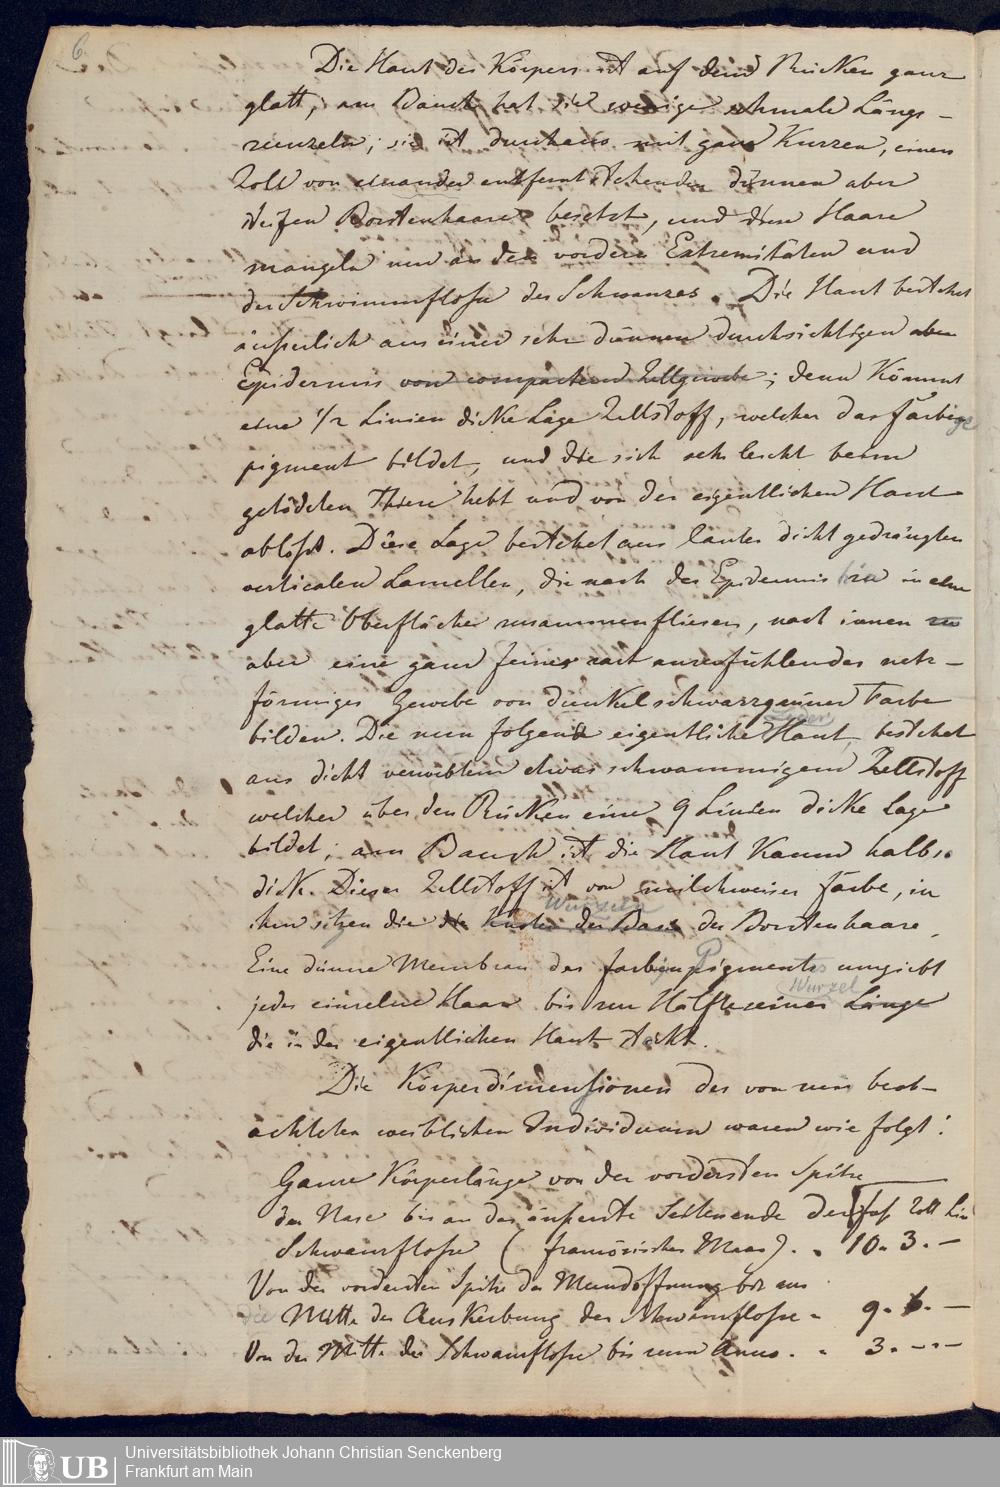 6.
Die Haut des Körpers ist auf dem Rücken ganz
glatt, am Bauch hat sie wenige schmale Längs-
runzeln; sie ist durchaus mit ganz kurzen, einen
Zoll von einander entfernt stehenden dünnen aber
steifen Borstenhaare besetzt, und diese Haare
mangeln nur an den vordern Extremitäten und
der Schwimmflosse des Schwanzes. Die Haut bestehet
äusserlich aus einer sehr dünnen durchsichtigen
Epidermis von compactem Zellgewebe; denn kömmt
eine 1/2 Linien dicke Lage Zellstoff, welcher das färbige
pigment bildet, und die sich sehr leicht beim
getödeten Thiere hebt und von der eigentlichen Haut
ablöst. Diese Lage bestehet aus lauter dicht gedrängten
verticalen Lamellen, die nach der Epidermis hin in eine
glatte Oberfläche zusammenfliesen, nach innen zu
aber eine ganz feines zart anzufühlendes netz-
förmiges Gewebe von dunkelschwarzgrüner Farbe
bilden. Die nun folgende eigentliche Haut, bestehet
Leder
aus dicht verwebtem etwas schwammigem Zellstoff
welcher über den Rücken eine 9 Linien dicke Lage
bildet; am Bauch ist die Haut kaum halb so
dick. Dieser Zellstoff ist von milchweiser Farbe, in
ihm sitzen die die der Basis der Borstenhaare.
Wurzeln
Eine dünne Membran des farbigen Pigmentes umgiebt
jedes einzelne Haar bis zur Hälfte seiner Länge
Wurzel
die in der eigentlichen Haut steckt.
Die Körperdimensionen des von mir beob-
achteten weiblichen Individuum waren wie folgt:
Ganze Körperlänge von der vordersten Spitze
der Nase bis an das äusserste Seitenende der Fuss Zoll Lin
Schwanzflosse (französisches Maas). . 10. 3. —
Von der vordersten Spitze der Mundöffnung bis zur
Mitte der Auskerbung der Schwanzflosse . 9. 6. —
Von der Mitte der Schwanzflosse bis zum Anus. . 3. —.—
Universitätsbibliothek Johann Christian Senckenberg
Frankfurt am Main
UB